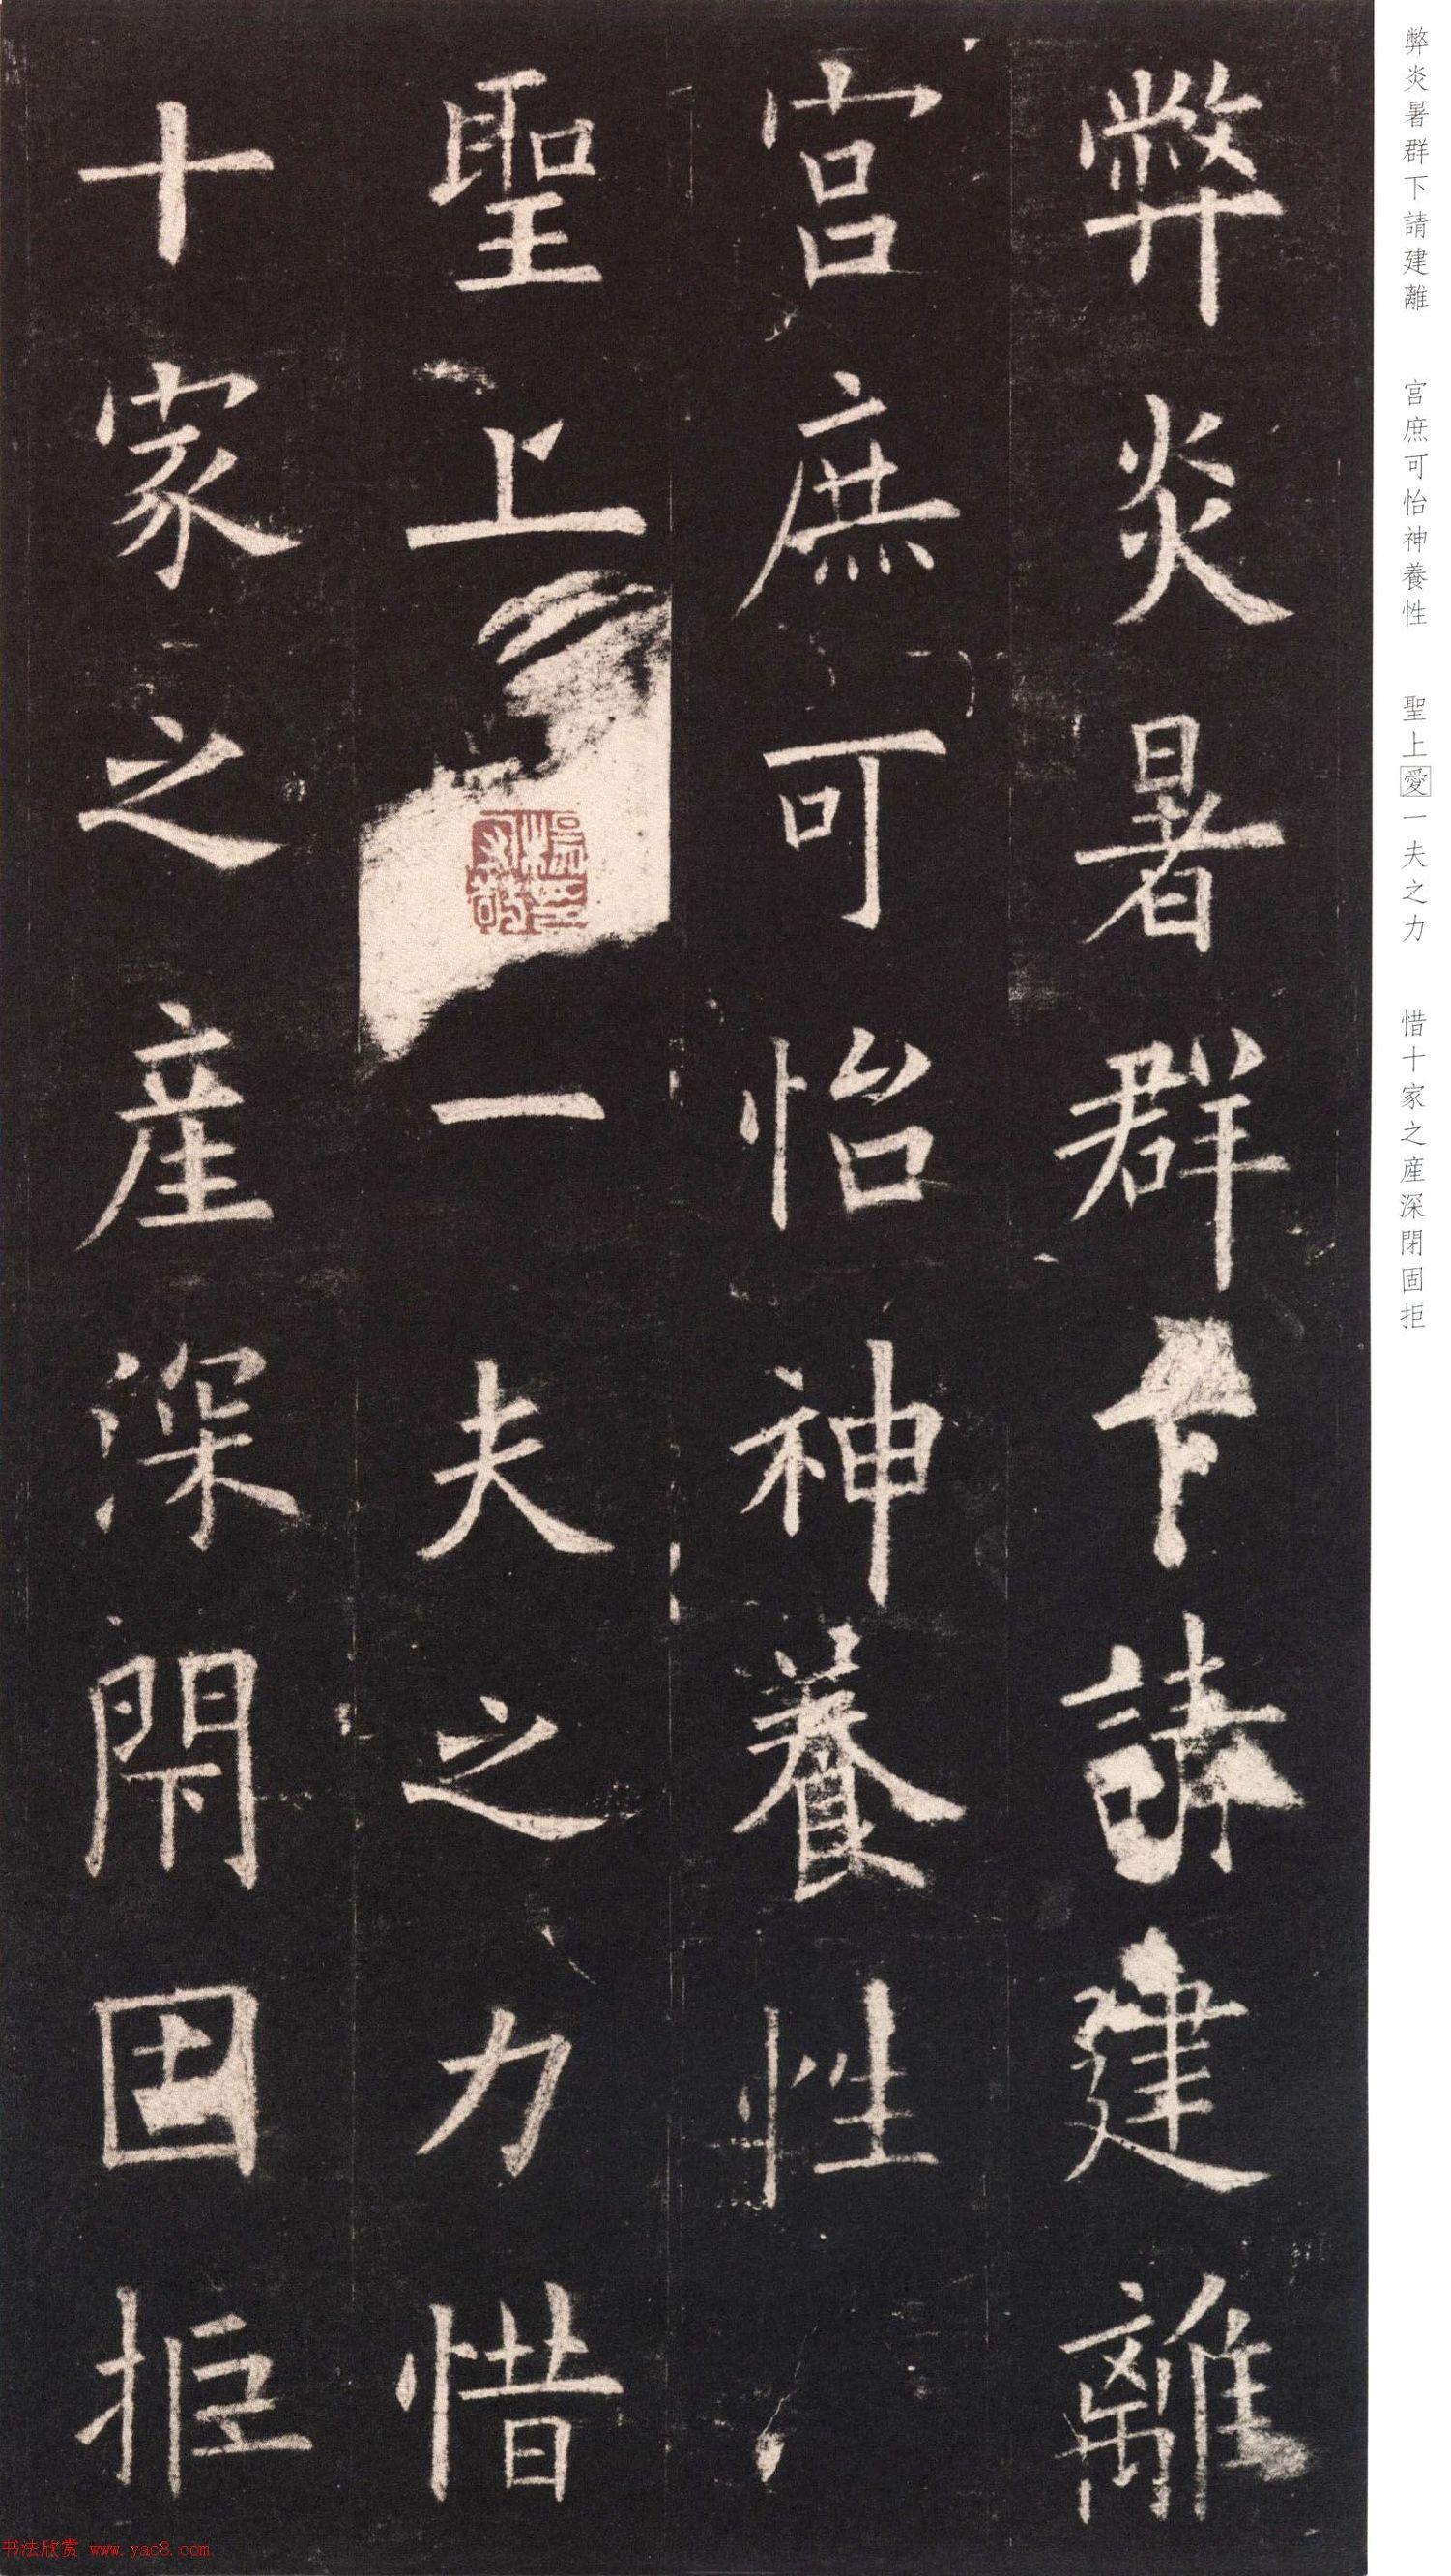 弊炎暑群下請建離
宫庶可怡神養性
聖上一夫之力惜
十家之産深閇固拒
弊炎暑群下請建離 宫庶可怡神養性 聖上愛一夫之力 惜十家之産深閉固拒
书法欣赏 www.yac8.com